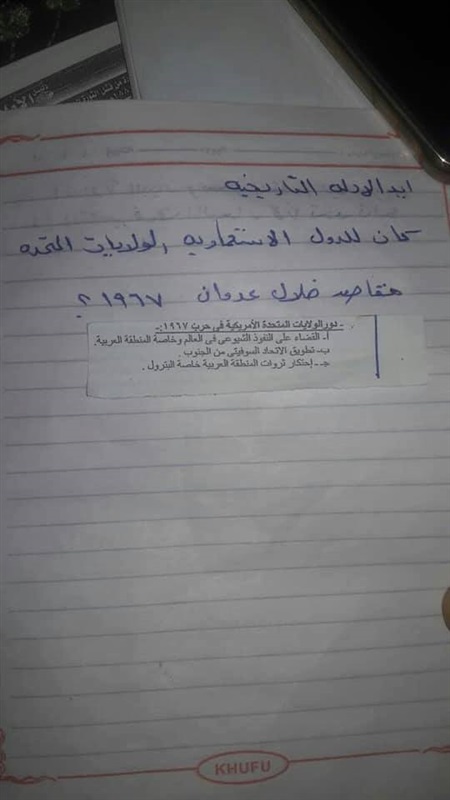 ايد الادله التاريخيه
كان للدول الاستعماريه الولايات المتحده
مقاصد خلال عدوان ١٩٦٧ ؟
- دور الولايات المتحدة الأمريكية فى حرب ١٩٦٧:-
أ- القضاء على النفوذ الشيوعى فى العالم وخاصة المنطقة العربية.
ب- تطويق الاتحاد السوفيتى من الجنوب
جـ - إحتكار ثروات المنطقة العربية خاصة البترول .
KHUFU